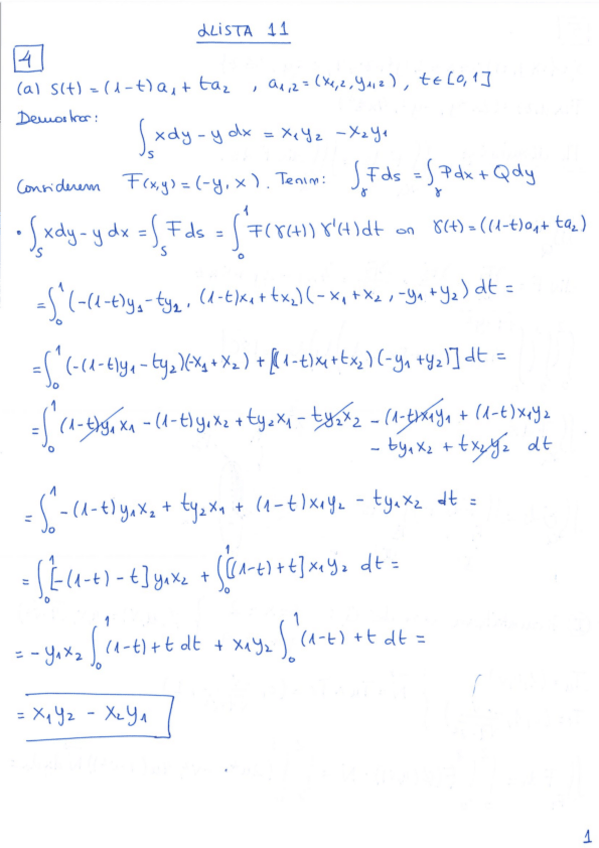 LLISTA 11
4
(a) S(t) = (1-t)a₁ + ta₂ , a₁,₂ = (x₁,₂, y₁,₂) , t ∈ [0,1]
Demostrar:
∫ₛ xdy - y dx = x₁y₂ - x₂y₁
Considerem F(x,y) = (-y, x). Tenim: ∫ᵧ F ds = ∫ᵧ Pdx + Qdy
• ∫ₛ xdy - y dx = ∫ₛ F ds = ∫₀¹ F(γ(t)) γ'(t) dt on γ(t) = ((1-t)a₁ + ta₂)
= ∫₀¹ (-(1-t)y₁ - ty₂, (1-t)x₁ + tx₂)(-x₁ + x₂, -y₁ + y₂) dt =
= ∫₀¹ (-(1-t)y₁ - ty₂)(-x₁ + x₂) + [(1-t)x₁ + tx₂)(-y₁ + y₂)] dt =
= ∫₀¹ (1-t)y₁x₁ - (1-t)y₁x₂ + ty₂x₁ - ty₂x₂ - (1-t)x₁y₁ + (1-t)x₁y₂
- ty₁x₂ + tx₂y₂ dt
= ∫₀¹ -(1-t)y₁x₂ + ty₂x₁ + (1-t)x₁y₂ - ty₁x₂ dt =
= ∫₀¹ [-(1-t) - t] y₁x₂ + ∫₀¹ [(1-t) + t] x₁y₂ dt =
= -y₁x₂ ∫₀¹ (1-t) + t dt + x₁y₂ ∫₀¹ (1-t) + t dt =
= x₁y₂ - x₂y₁
1